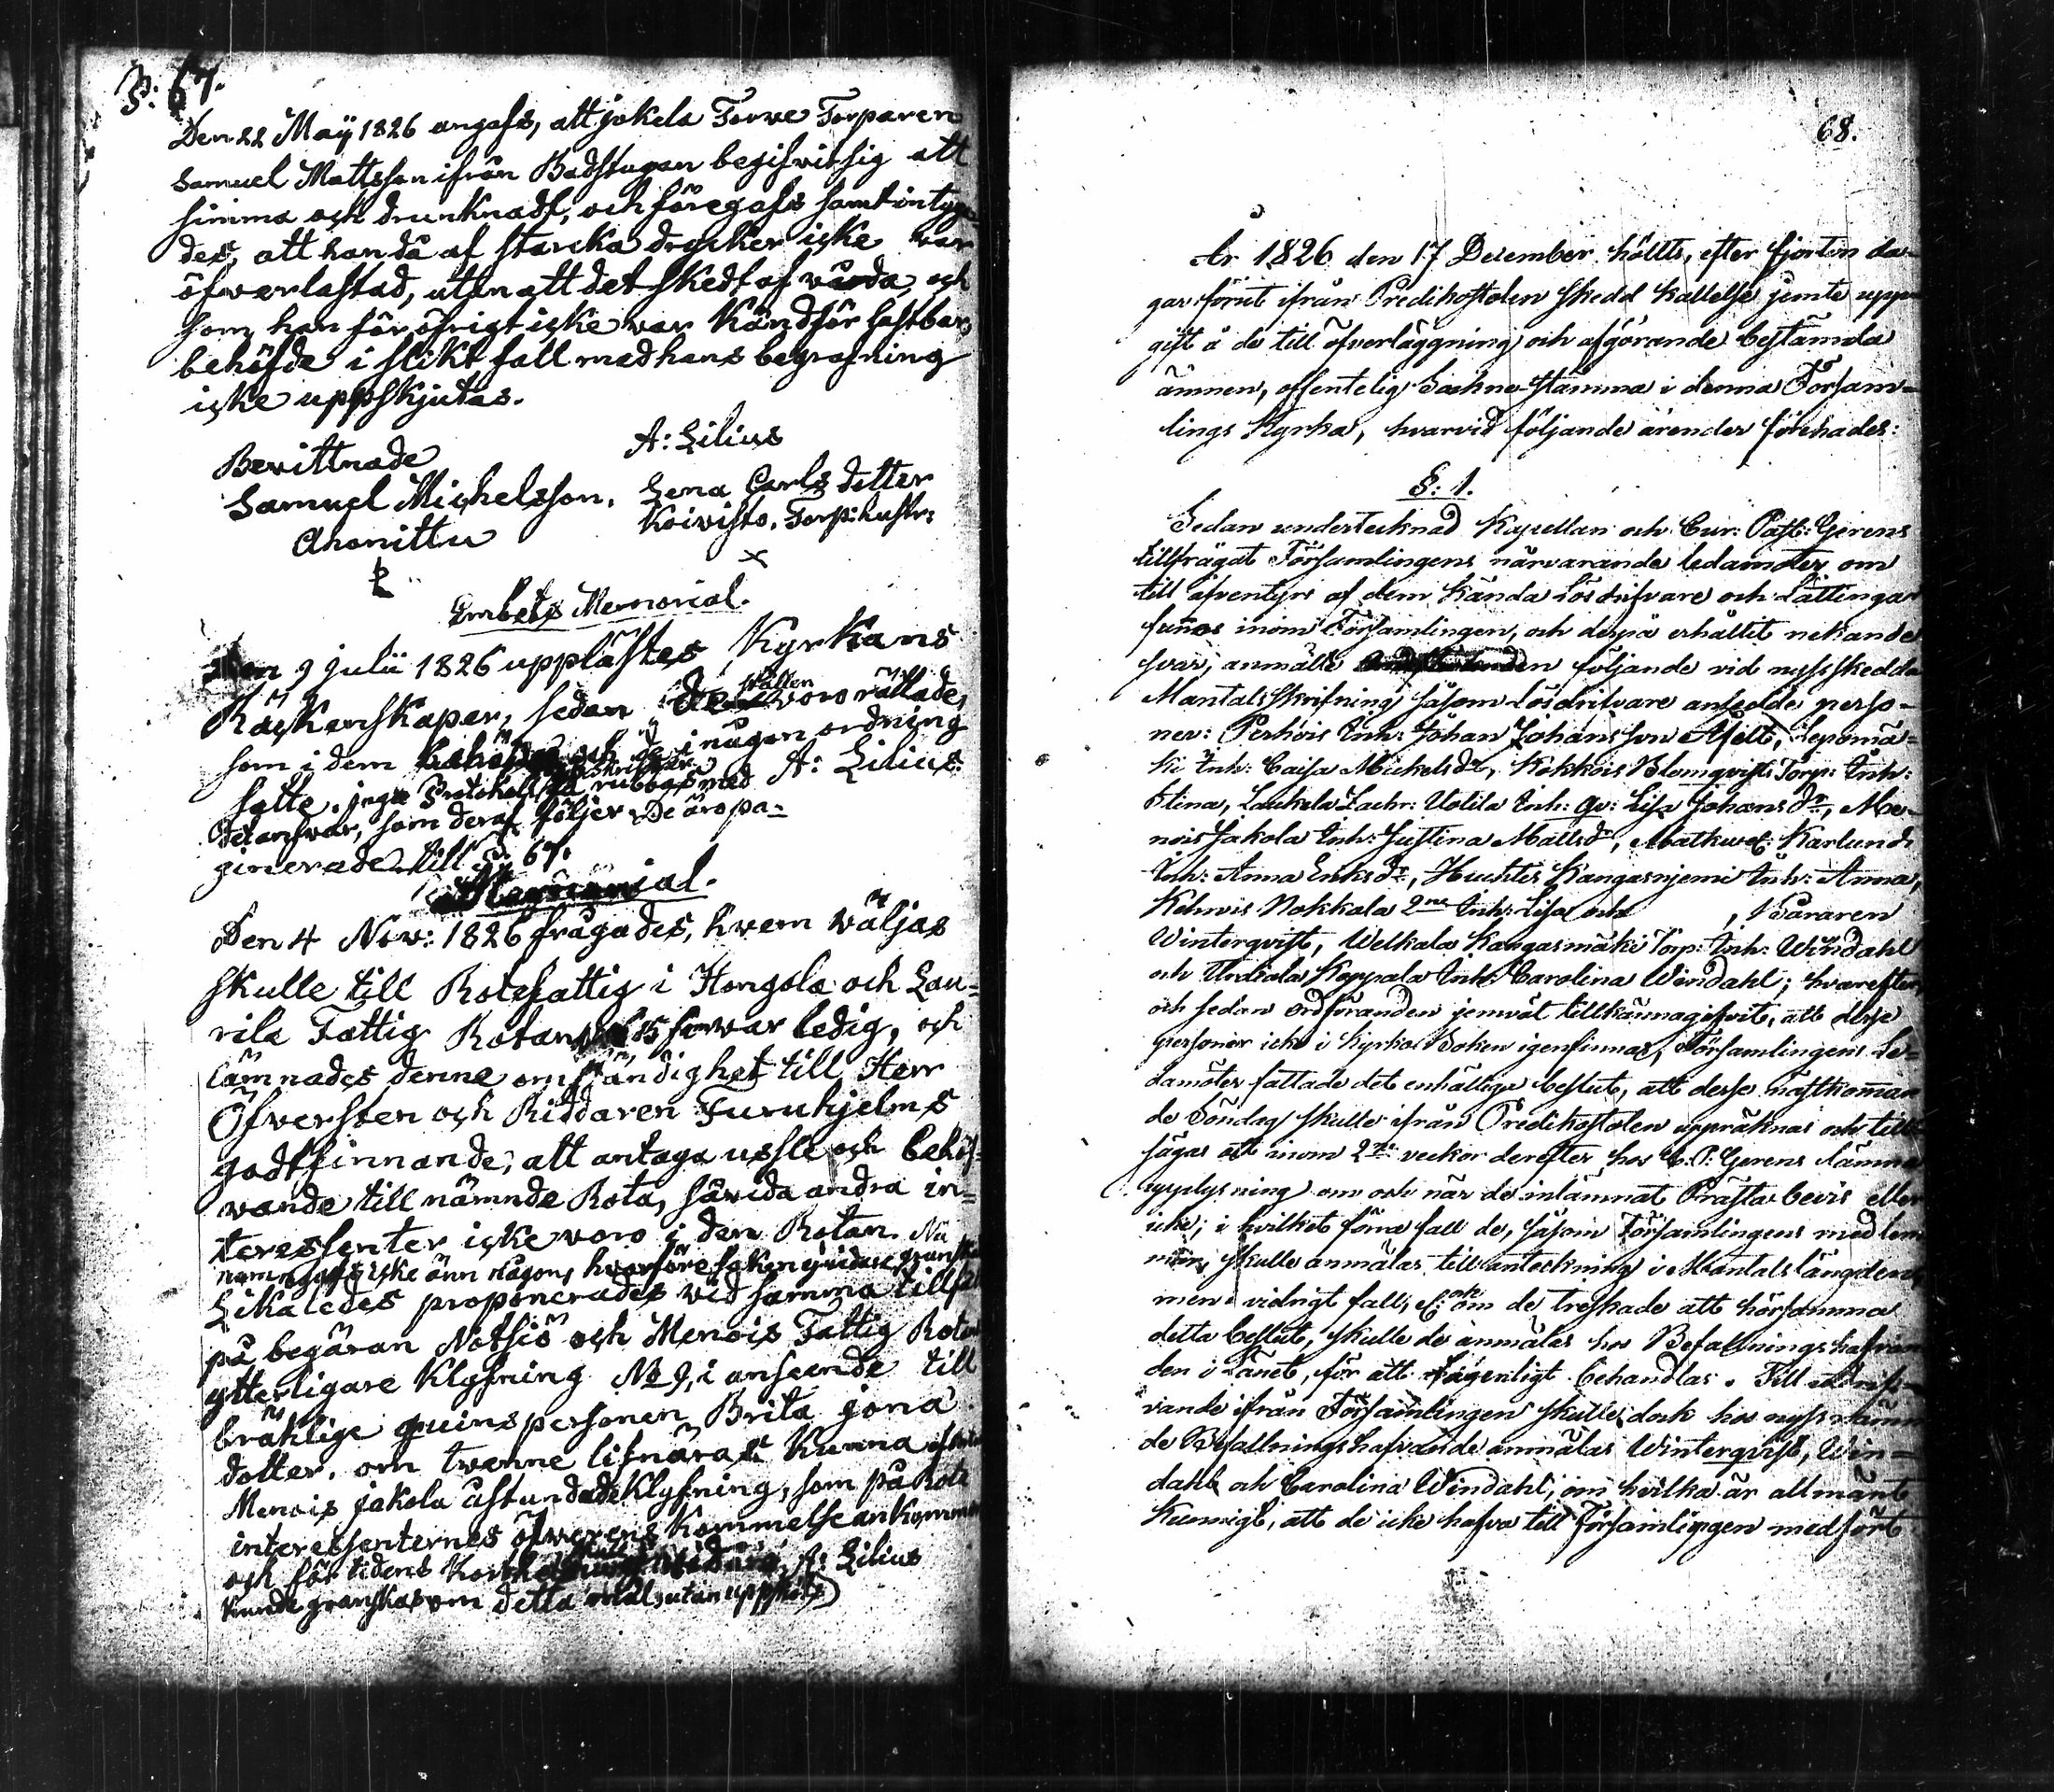 P: 67.
Den 22 Maÿ 1826 angafs, att jokela Torwe Torparen
Samuel Mattsson ifrån Badstugan begifvit sig att
simma och drunknadt, och föregafs samt intyga-
des, att han då af starcka drycker icke var
öfwerlastad, utan att det skedt af våda, och
som han för öfrigt icke war Känd för lastbar,
behöfde i slikt fall med hans begrafning
icke uppskjutas.
A: Lilius
Bevittnade
Samuel Michelsson.
Ahonittu
Lena Carls dotter
Koivisto, Torp: hustr:
x
Embets Memorial.
Den 9 Julii 1826 upplästes Kyrkans
Räckenskaper, sedan de woro rättade,
som i dem i någon ordning
satte. A: Lilius
det answar, som deraf följer. De äro pa-
ginerade till P. 67.
Memorial.
Den 4 Nov: 1826 frågades, hvem väljas
skulle till Rotefattig i Hongola och Lau-
rila Fattig Rotan som war ledig, och
lämnades denne omständighet till Herr
Öfversten och Riddaren Furuhjelms
godtfinnande, att antaga ussle och behöf-
vande till nämnde Rota, såvida andra in-
teressenter icke woro i den Rotan. Nu
namngafs icke änn någon, hvarföre saken vidare granskas
Likaledes proponerades vid samma tillfälle
på begäran Notsiö och Menois Fattig Rotens
ytterligare Klyfning No 9, i anseende till
bråklige qwinspersonen Brita jona
dotter, om twenne lifnärast Kunna
Menois jakola åstundade Klyfning, som på Rote
interessenternes öfwerens Kommelse ankommer
och för tidens korthet A: Lilius
kunde granskas om detta mål utan uppskof
68.
År 1826 den 17 December hölts, efter fjorton da-
gar förut ifrån Predikostolen skedd kallelse jemte upp-
gift å de till öfverläggning och afgörande bestämda
ämnen, offentelig Sockne-stämma i denna Försam-
lings Kyrka, hvarvid följande ärender förehades:
§: 1.
Sedan undertecknad Kapellan och Cur: Past: Gerens
tillfrågat Församlingens närvarande ledamöter om
till äfventyrs af dem kända lösdrifvare och Lättingar
funos inom Församlingen, och derpå erhållit nekande
svar, anmälte följande vid nyssskedda
Mantalsskrifning såsom lösdrifvare antedde perso-
ner: Perhois Inh: Johan Johansson Afelt, Lepomä-
ki Inh: Caisa Mickelsdr, Kokkois Blomqvists Torp: Inh:
Stina, Laukela Zachr: Uotila Inh: Qv: Lisa Johansdr, Me-
nois Jakola Inh: Justina Mattsdr, Matkux: Karlund
Inh: Anna Eriksdr, Huhtis Kangasnjemi Inh: Anna,
Kihwis Nokkala 2ne Inh: Lisa och , Våraren
Winterqvist, Welkala Kangasmäki Torp: Inh: Windahl
och Urdiala Koppala Inh: Carolina Windahl; hvarefter
och sedan ordföranden jemväl tillkännagifvit, att desse
personer icke i Kyrko Boken igenfinnas, Församlingens Le-
damöter fattade det enhällige beslut, att desse nästkoman
de Söndag skulle ifrån Predikostolen uppräknas och till
sägas att inom 2ne veckor derefter hos C. P: Gerens lämna
upplysning om och när de inlämnat Prästa bevis eller
icke; i hvilket förra fall de, såsom Församlingens medlem
mar, skulle anmälas till anteckning i Mantals längden,
men i vidrigt fall, och om de treskade att hörsamma
detta beslut, skulle de anmälas hos Befallningshafvan
den i Länet, för att lagenligt behandlas. Till utdrif-
vande ifrån Församlingen skulle dock hos nyssnämn
de Befallningshafvande anmälas Winterqvist, Win-
dahl och Carolina Windahl, om hvilka är allmänt
Kunnigt, att de icke hafva till Församlingen medfört